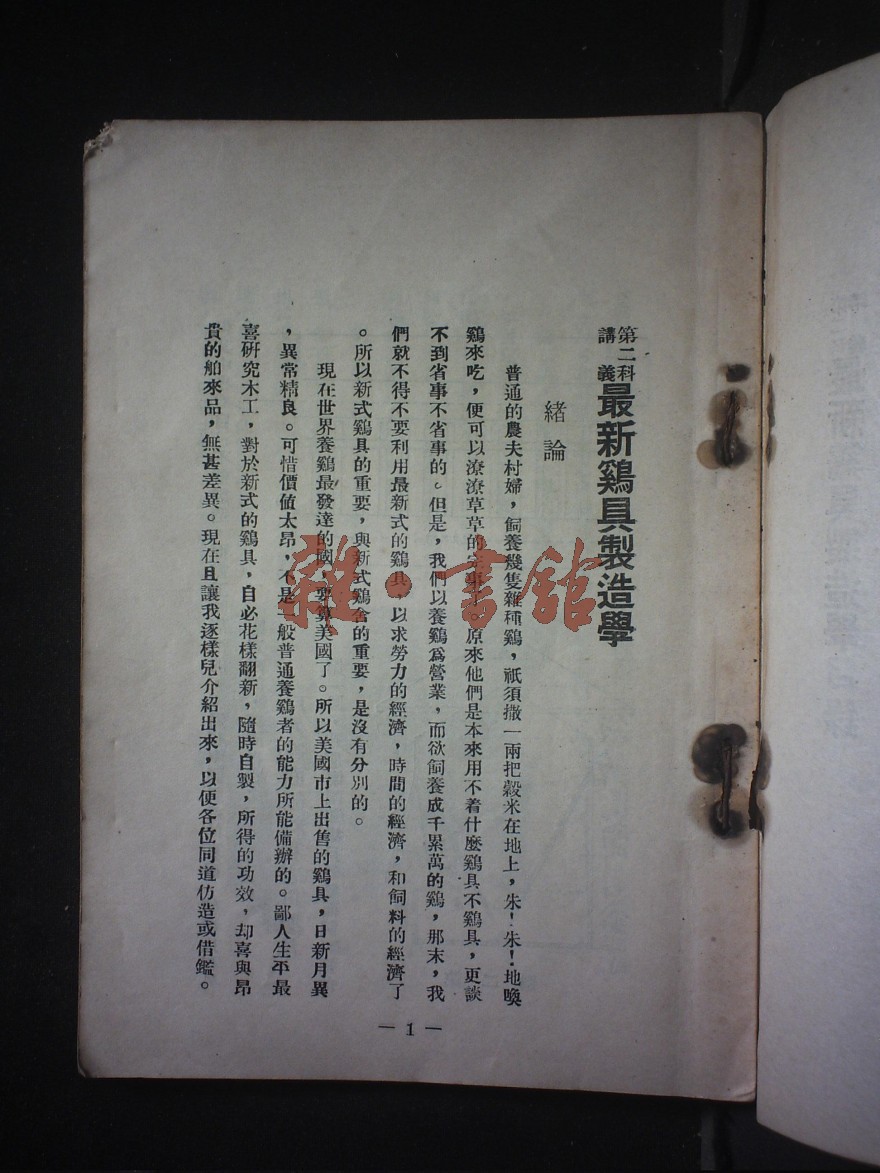 第二科
講義
最新鷄具製造學
緒論
普通的農夫村婦，飼養幾隻雜種鷄，祇須撒一兩把穀米在地上，朱！朱！地喚
鷄來吃，便可以潦潦草草的完事了。原來他們是本來用不着什麼鷄具不鷄具，更談
不到省事不省事的。但是，我們以養鷄爲營業，而欲飼養成千累萬的鷄，那末，我
們就不得不要利用最新式的鷄具，以求勞力的經濟，時間的經濟，和飼料的經濟了
。所以新式鷄具的重要，與新式鷄舍的重要，是沒有分別的。
現在世界養鷄最發達的國，要算美國了。所以美國市上出售的鷄具，日新月異
，異常精良。可惜價値太昂，不是一般普通養鷄者的能力所能備辦的。鄙人生平最
喜研究木工，對於新式的鷄具，自必花樣翻新，隨時自製，所得的功效，却喜與昂
貴的舶來品，無甚差異。現在且讓我逐樣兒介紹出來，以便各位同道仿造或借鑑。
— 1 —
雜·書館